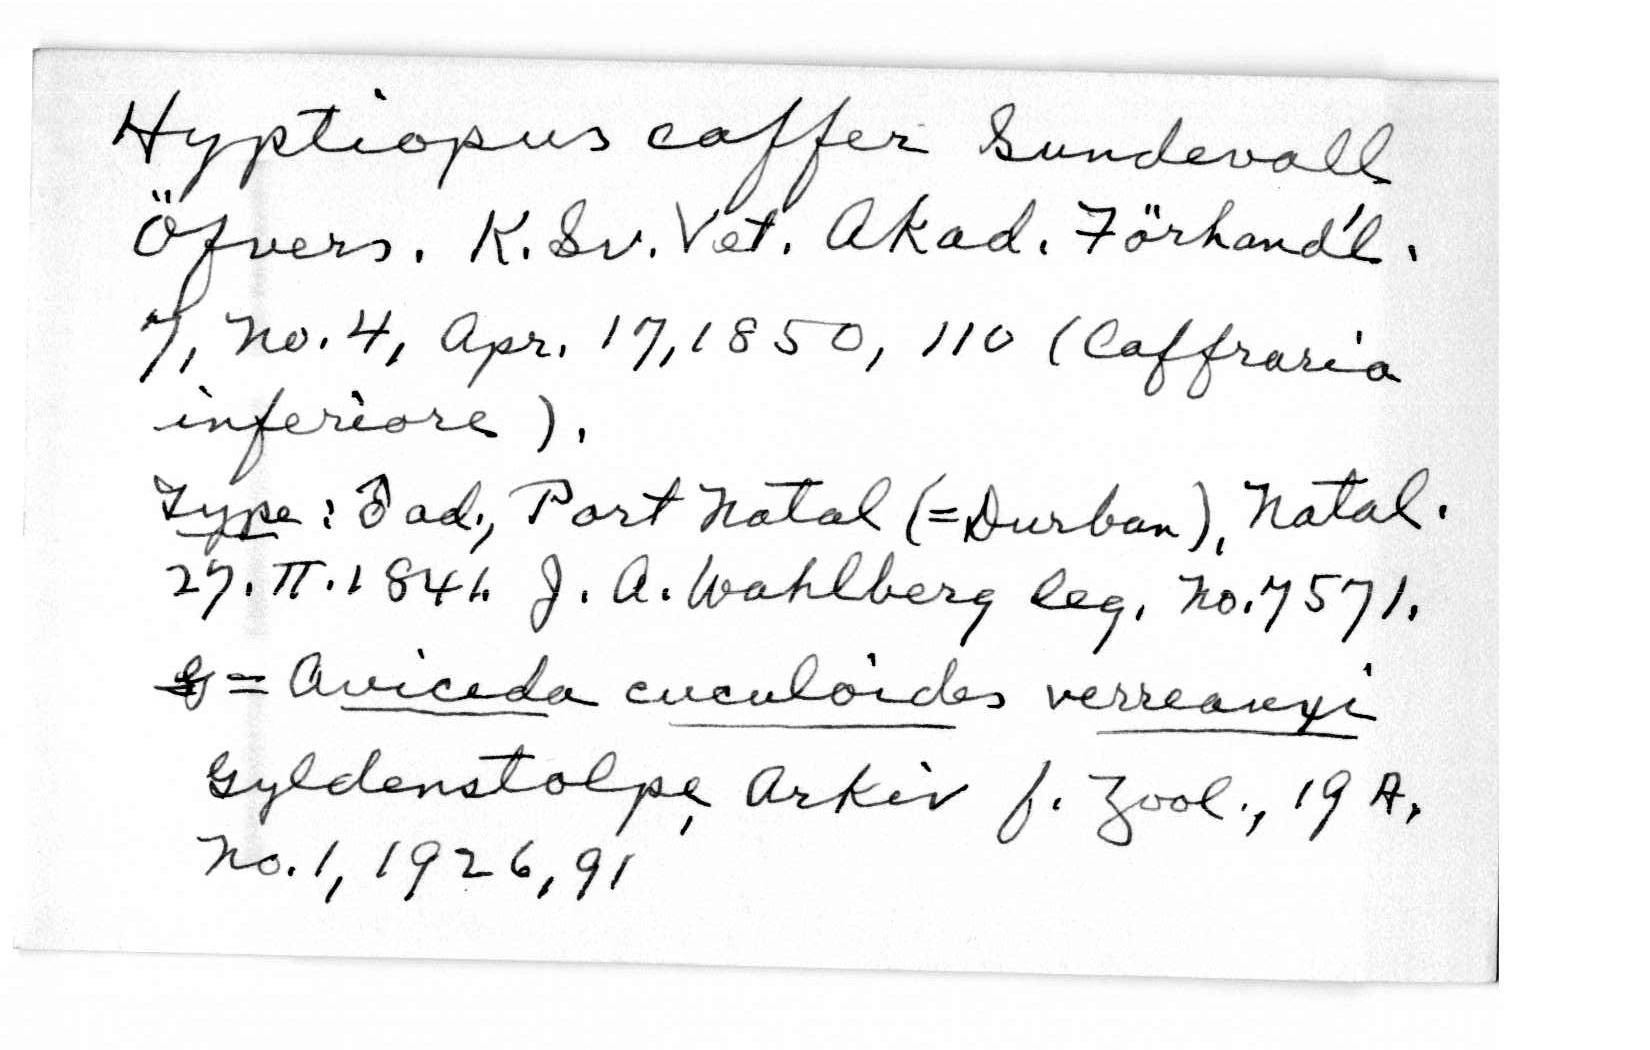 Hyptiopus caffer Sundevall
Öfvers. K. Sv. Vet. Akad. Förhand'l.
7, no. 4, Apr. 17, 1850, 110 (Caffraria
inferiore).
Type: ♂ ad., Port Natal (=Durban), Natal.
27. II. 1841. J. A. Wahlberg leg. No. 7571.
= Aviceda cuculoides verreauxi
Gyldenstolpe, Arkiv f. Zool., 19 A,
no. 1, 1926, 91